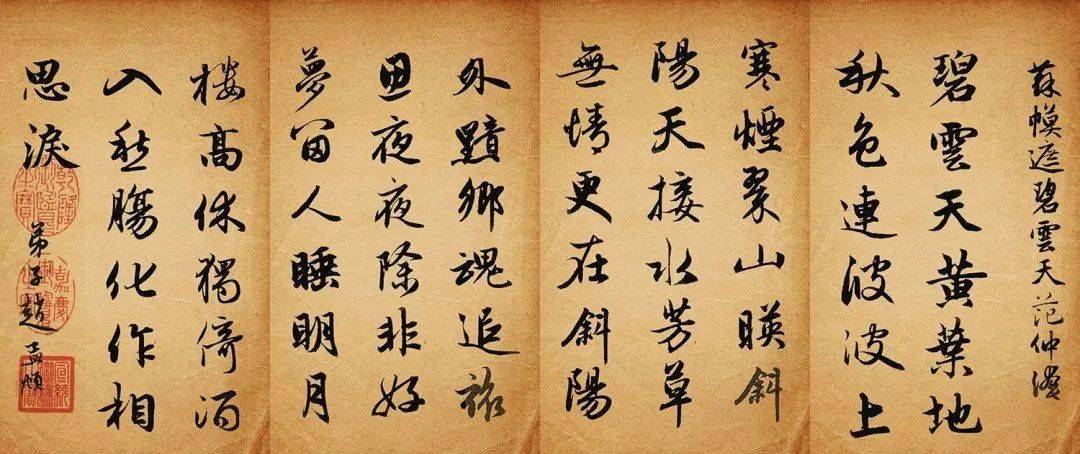 蘇幙遮碧雲天范仲淹
碧雲天黃葉地
秋色連波波上
寒煙翠山暎斜
陽天接水芳草
無情更在斜陽
外黯鄉魂追旅
思夜夜除非好
夢留人睡明月
樓高休獨倚酒
入愁腸化作相
思淚
弟子趙孟頫